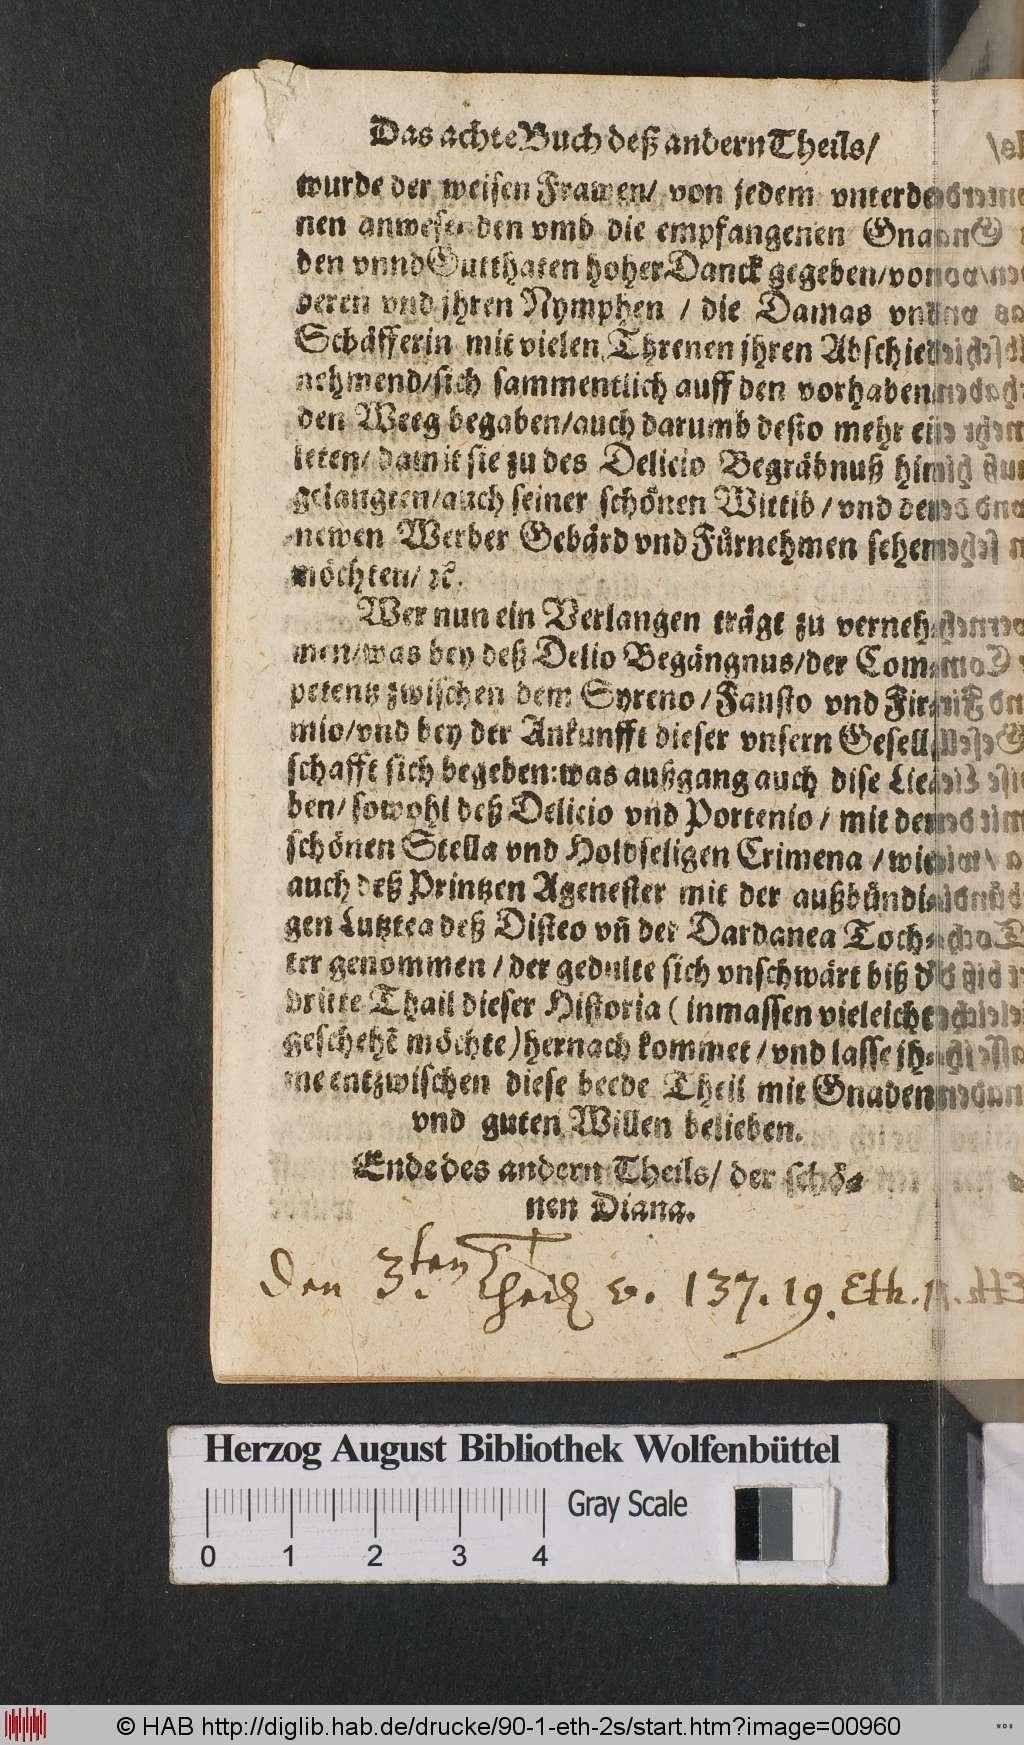 Das achte Buch deß andern Theils/
wurde der weisen Frawen/ von jedem vnter de
nen anwesenden vmb die empfangenen Gna
den vnnd Gutthaten hoher Danck gegeben/von
deren vnd jhren Nymphen / die Damas vnd
Schäfferin mit vielen Threnen jhren Abschied
nehmend/sich sammentlich auff den vorhaben
den Weeg begaben/auch darumb desto mehr ei
leten/ damit sie zu des Delicio Begräbnuß hin
gelangten/auch seiner schönen Wittib / vnd dem
newen Werber Gebärd vnd Fürnehmen sehen
möchten/ ꝛc.
Wer nun ein Verlangen trägt zu verneh
men/was bey deß Delio Begängnus/der Com
petentz zwischen dem Syreno / Fausto vnd Fir
mio/vnd bey der Ankunfft dieser vnsern Gesell
schafft sich begeben:was außgang auch dise Lie
ben/ sowohl deß Delicio vnd Portenio / mit der
schönen Stella vnd Holdseligen Crimena / wie
auch deß Printzen Agenester mit der außbündi
gen Lutztea deß Disteo vñ der Dardanea Toch
ter genommen / der gedulte sich vnschwärt biß d
dritte Thail dieser Historia ( inmassen vieleicht
geschehẽ möchte) hernach kommet / vnd lasse jh
me entzwischen diese beede Theil mit Gnaden
vnd guten Willen belieben.
Ende des andern Theils/ der schö⸗
nen Diana.
Den 3.ten Theil v. 137. 19. Eth.
Herzog August Bibliothek Wolfenbüttel
Gray Scale
0 1 2 3 4
© HAB http://diglib.hab.de/drucke/90-1-eth-2s/start.htm?image=00960